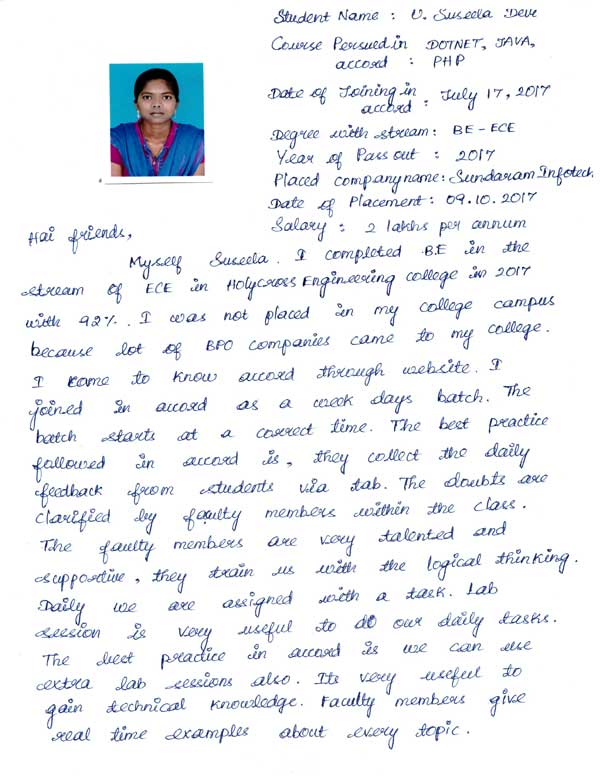 Student Name : V. Suseela Devi
Course Persued in DOTNET, JAVA,
accord : PHP
Date of Joining in
accord : July 17, 2017
Degree with stream: BE - ECE
Year of Pass out : 2017
Placed company name: Sundaram Infotech
Date of Placement: 09.10.2017
Salary : 2 lakhs per annum
Hai friends,
Myself Suseela. I completed B.E in the
stream of ECE in Holycross Engineering college in 2017
with 92%. I was not placed in my college campus
because lot of BPO companies came to my college.
I came to know accord through website. I
joined in accord as a week days batch. The
batch starts at a correct time. The best practice
followed in accord is, they collect the daily
feedback from students via tab. The doubts are
clarified by faulty members within the class.
The faulty members are very talented and
supportive, they train us with the logical thinking.
Daily we are assigned with a task. Lab
session is very useful to do our daily tasks.
The best practice in accord is we can use
extra lab sessions also. Its very useful to
gain technical knowledge. Faculty members give
real time examples about every topic.